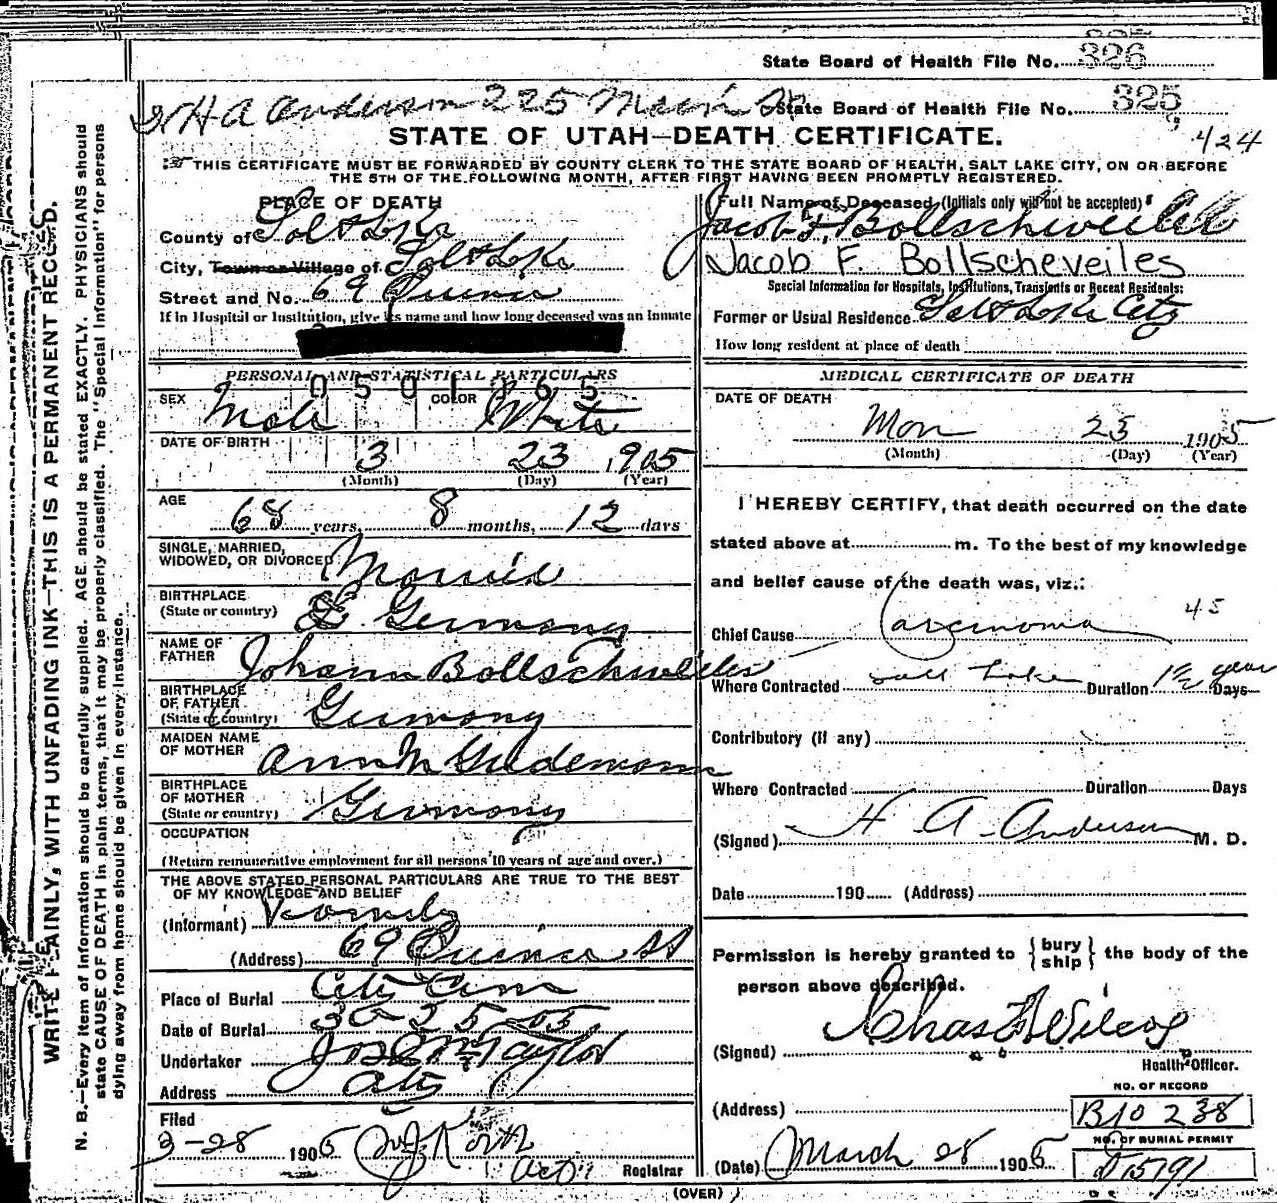 State Board of Health File No. 326
H A Anderson 225 Main St State Board of Health File No. 325
STATE OF UTAH—DEATH CERTIFICATE. 424
THIS CERTIFICATE MUST BE FORWARDED BY COUNTY CLERK TO THE STATE BOARD OF HEALTH, SALT LAKE CITY, ON OR BEFORE
THE 5TH OF THE FOLLOWING MONTH, AFTER FIRST HAVING BEEN PROMPTLY REGISTERED.
WRITE PLAINLY, WITH UNFADING INK—THIS IS A PERMANENT RECORD.
N. B.—Every item of information should be carefully supplied. AGE should be stated EXACTLY. PHYSICIANS should
state CAUSE OF DEATH in plain terms, that it may be properly classified. The "Special Information" for persons
dying away from home should be given in every instance.
PLACE OF DEATH
County of Salt Lake
City, Town or Village of Salt Lake
Street and No. 69 Quince
If in Hospital or Institution, give its name and how long deceased was an inmate
PERSONAL AND STATISTICAL PARTICULARS
0501365
SEX Male COLOR White
DATE OF BIRTH 3 23 1905
(Month) (Day) (Year)
AGE 68 years, 8 months, 12 days
SINGLE, MARRIED,
WIDOWED, OR DIVORCED Married
BIRTHPLACE
(State or country) Germany
NAME OF
FATHER Johann Bollschweiler
BIRTHPLACE
OF FATHER
(State or country) Germany
MAIDEN NAME
OF MOTHER Ann M Gudemann
BIRTHPLACE
OF MOTHER
(State or country) Germany
OCCUPATION
(Return remunerative employment for all persons 10 years of age and over.)
THE ABOVE STATED PERSONAL PARTICULARS ARE TRUE TO THE BEST
OF MY KNOWLEDGE AND BELIEF
(Informant)
(Address) 69 Quince St
Place of Burial City Cem
Date of Burial 3-25-05
Undertaker Jos E Taylor
Address City
Filed
3-28 1905
Registrar
Full Name of Deceased (Initials only will not be accepted)
Jacob F. Bollschweiler
Jacob F. Bollscheveiles
Special Information for Hospitals, Institutions, Transients or Recent Residents:
Former or Usual Residence Salt Lake City
How long resident at place of death
MEDICAL CERTIFICATE OF DEATH
DATE OF DEATH
Mar 23 1905
(Month) (Day) (Year)
I HEREBY CERTIFY, that death occurred on the date
stated above at m. To the best of my knowledge
and belief cause of the death was, viz.:
Chief Cause Carcinoma 45
Where Contracted Salt Lake Duration 1½ year Days
Contributory (if any)
Where Contracted Duration Days
(Signed) H A Anderson M. D.
Date 190 (Address)
Permission is hereby granted to { bury ship } the body of the
person above described.
(Signed) Chas F Wilcox
Health Officer.
NO. OF RECORD
(Address) B10 238
NO. OF BURIAL PERMIT
(Date) March 28 1905 D15791
(OVER)